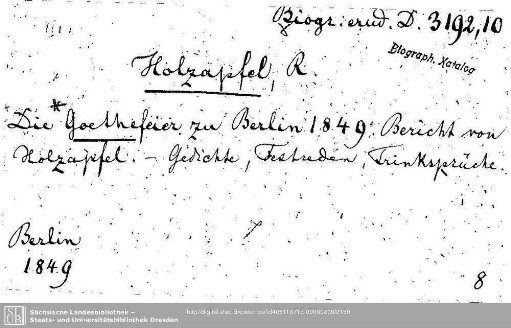 Biogr. erud. D. 3192,10
Biograph. Katalog
Holzapfel, R.
*
Die Goethefeier zu Berlin 1849. Bericht von
Holzapfel. – Gedichte, Festreden, Trinksprüche.
Berlin
1849
8
Sächsische Landesbibliothek –
Staats- und Universitätsbibliothek Dresden